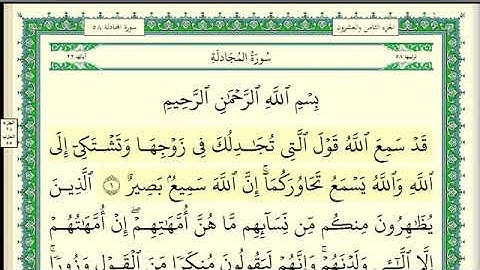 الجزء الثامن والعشرون
سورة المجادلة ٥٨
ترتيبها ٥٨
سُورَةُ المُجَادلَةِ
آياتها ٢٢
بِسْمِ ٱللَّهِ ٱلرَّحْمَٰنِ ٱلرَّحِيمِ
قَدْ سَمِعَ ٱللَّهُ قَوْلَ ٱلَّتِي تُجَٰدِلُكَ فِي زَوْجِهَا وَتَشْتَكِيٓ إِلَى
ٱللَّهِ وَٱللَّهُ يَسْمَعُ تَحَاوُرَكُمَآۚ إِنَّ ٱللَّهَ سَمِيعُۢ بَصِيرٌ ١ ٱلَّذِينَ
يُظَٰهِرُونَ مِنكُم مِّن نِّسَآئِهِم مَّا هُنَّ أُمَّهَٰتِهِمْۖ إِنْ أُمَّهَٰتُهُمْ
إِلَّا ٱلَّٰٓـِٔي وَلَدْنَهُمْۚ وَإِنَّهُمْ لَيَقُولُونَ مُنكَرًا مِّنَ ٱلْقَوْلِ وَزُورًاۚ
الجزء
٢٨
الحزب
٥٥